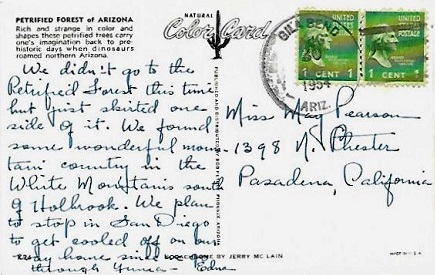 PETRIFIED FOREST of ARIZONA
Rich and strange in color and
shapes these petrified trees carry
one's imagination back to pre-
historic days when dinosaurs
roamed northern Arizona.
We didn't go to the
Petrified Forest this time
but just skirted one
side of it. We found
some wonderful moun-
tain country in the
White Mountains south
of Holbrook. We plan
to stop in San Diego
to get cooled off on our
way home since we go
through Yuma - Edna
NATURAL
Color Card
GILA BEND
1954
ARIZ.
UNITED STATES POSTAGE
1 CENT 1
UNITED STATES POSTAGE
1 CENT 1
Miss May Pearson
1398 N. Chester
Pasadena, California
BY JERRY MC LAIN
MADE IN U.S.A.